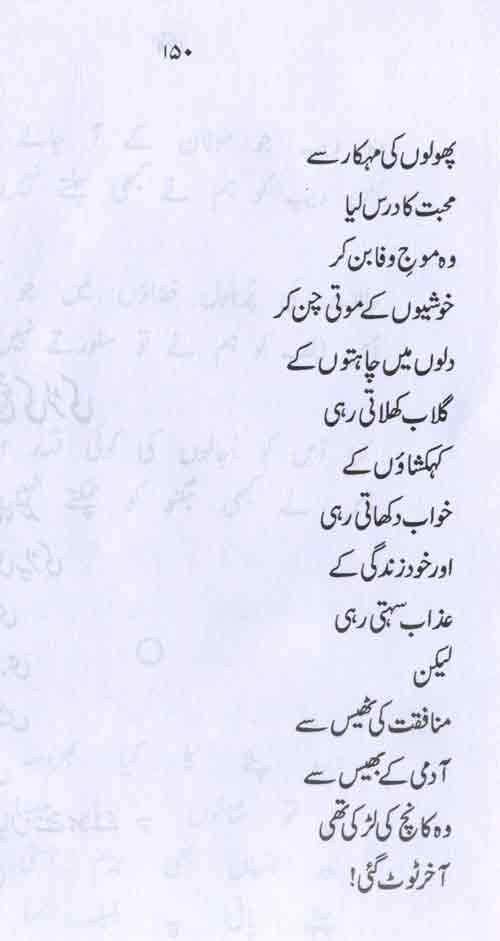 ۱۵۰
پھولوں کی مہکار سے
محبت کا درس لیا
وہ موجِ وفا بن کر
خوشیوں کے موتی چن کر
دلوں میں چاہتوں کے
گلاب کھلاتی رہی
کہکشاؤں کے
خواب دکھاتی رہی
اور خود زندگی کے
عذاب سہتی رہی
لیکن
منافقت کی ٹھیس سے
آدمی کے بھیس سے
وہ کانچ کی لڑکی تھی
آخر ٹوٹ گئی!